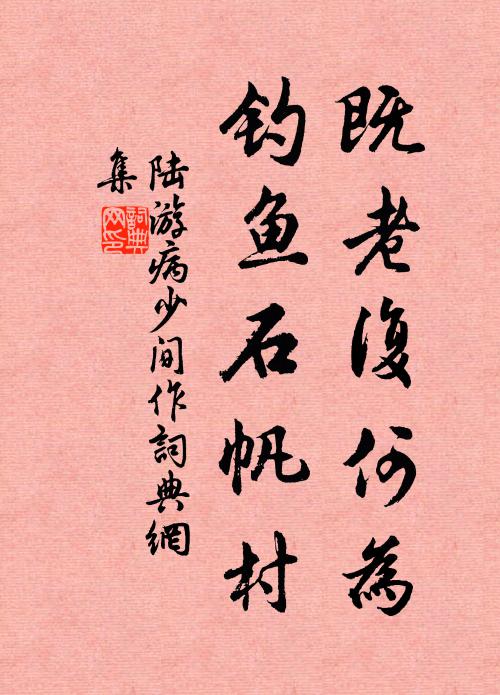 既老復何為
钓鱼石帆村
陆游病少间作詞典網
集
詞典
网印